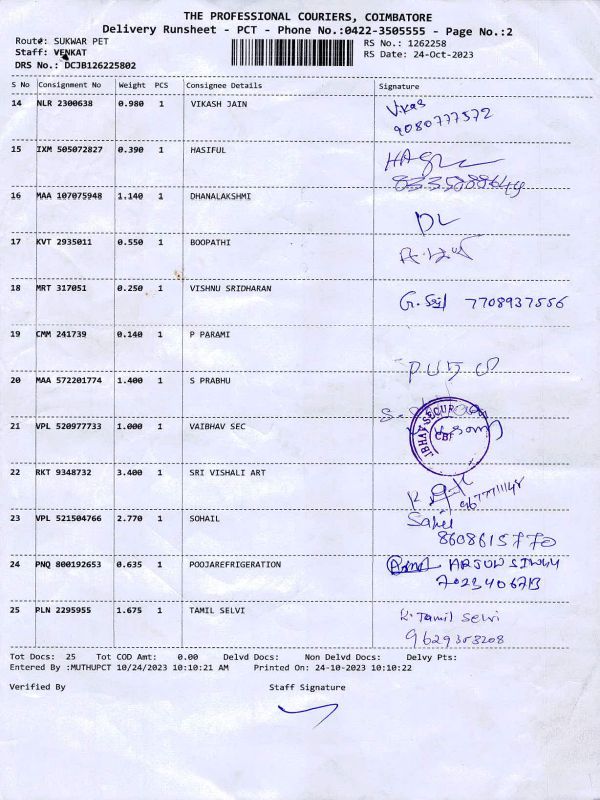 THE PROFESSIONAL COURIERS, COIMBATORE
Delivery Runsheet - PCT - Phone No.:0422-3505555 - Page No.:2
Route#: SUKWAR PET RS No.: 1262258
Staff: VENKAT RS Date: 24-Oct-2023
DRS No.: DCJB126225802
S No Consignment No Weight PCS Consignee Details Signature
14 NLR 2300638 0.980 1 VIKASH JAIN V.kas
9080777572
15 IXM 505072827 0.390 1 HASIFUL
16 MAA 107075948 1.140 1 DHANALAKSHMI DL
17 KVT 2935011 0.550 1 BOOPATHI
18 MRT 317051 0.250 1 VISHNU SRIDHARAN 7708937556
19 CMM 241739 0.140 1 P PARAMI
20 MAA 572201774 1.400 1 S PRABHU
21 VPL 520977733 1.000 1 VAIBHAV SEC
22 RKT 9348732 3.400 1 SRI VISHALI ART
23 VPL 521504766 2.770 1 SOHAIL
8608615770
24 PNQ 800192653 0.635 1 POOJAREFRIGERATION
25 PLN 2295955 1.675 1 TAMIL SELVI K. Tamil Selvi
9629353208
Tot Docs: 25 Tot COD Amt: 0.00 Delvd Docs: Non Delvd Docs: Delvy Pts:
Entered By :MUTHUPCT 10/24/2023 10:10:21 AM Printed On: 24-10-2023 10:10:22
Verified By Staff Signature